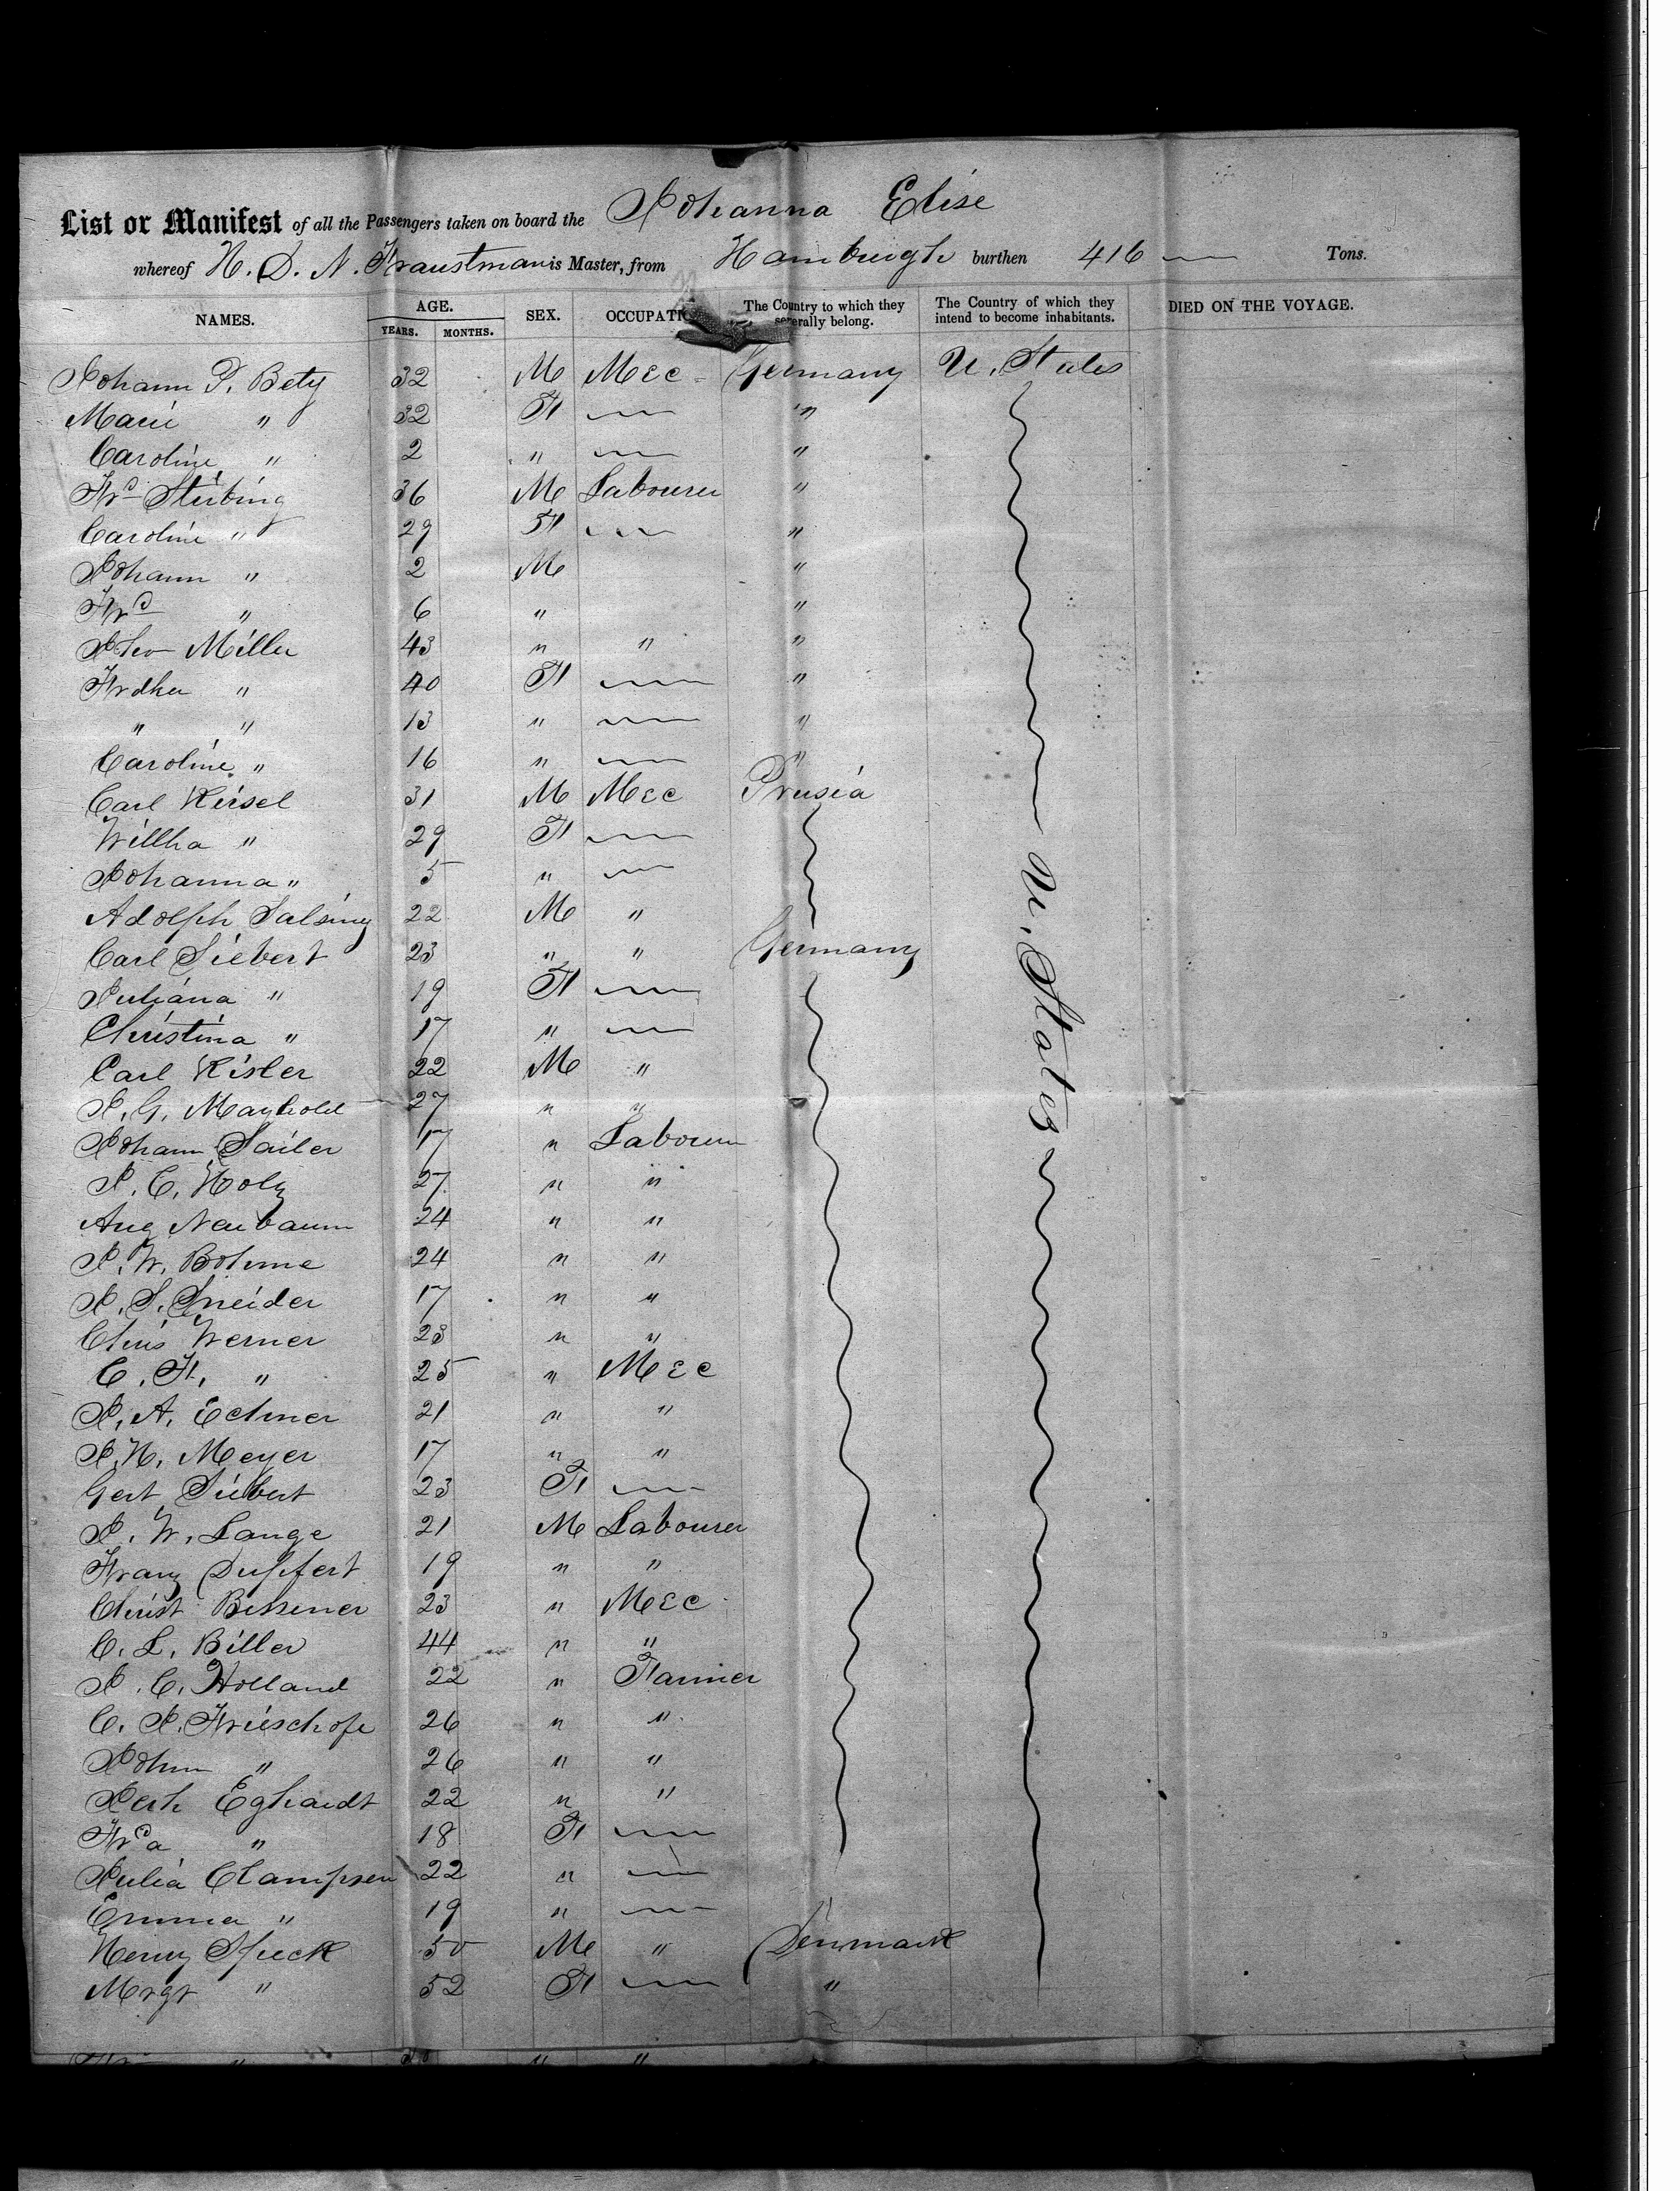 List or Manifest of all the Passengers taken on board the Johanna Elise
whereof H. D. N. Fraustman is Master, from Hamburgh burthen 416 — Tons.
NAMES. AGE. YEARS. MONTHS. SEX. OCCUPATI The Country to which they severally belong. The Country of which they intend to become inhabitants. DIED ON THE VOYAGE.
Johann F. Bety 32 M Mec Germany U. States
Marie " 32 F — "
Caroline " 2 " — "
Frd Stübing 36 M Labourer "
Caroline " 29 F — "
Johann " 2 M "
Frd " 6 " "
Miller 43 " " "
Frdka " 40 F — "
" " 13 " — "
Caroline " 16 " — "
Carl Keisel 31 M Mec Prusia
Willha " 29 F —
Johanna " 5 " —
Adolph Salsing 22 M "
Carl Siebert 23 " " Germany
Juliana " 19 F — U. States
Christina " 17 " —
Carl Kisler 22 M "
J. G. Mayhold 27 " "
Johann Sailer 17 " Labourer
J. C. Holz 27 " "
Aug Neubaum 24 " "
J. W. Bohme 24 " "
J. S. Sneider 17 " "
Chris Werner 23 " "
C. F. " 25 " Mec
J. A. Echner 21 " "
J. H. Meyer 17 " "
Gert Siebert 23 F —
J. W. Lange 21 M Labourer
Franz Duffert 19 " "
Christ Bessener 23 " Mec
C. L. Biller 44 " "
J. C. Holland 22 " Farmer
C. J. Frieschofe 26 " "
John " 26 " "
Eghardt 22 " "
Frda " 18 F —
Julia Clampsen 22 " —
Emma " 19 " —
Henry Speck 50 M " Denmark
Mrgr " 52 F — "